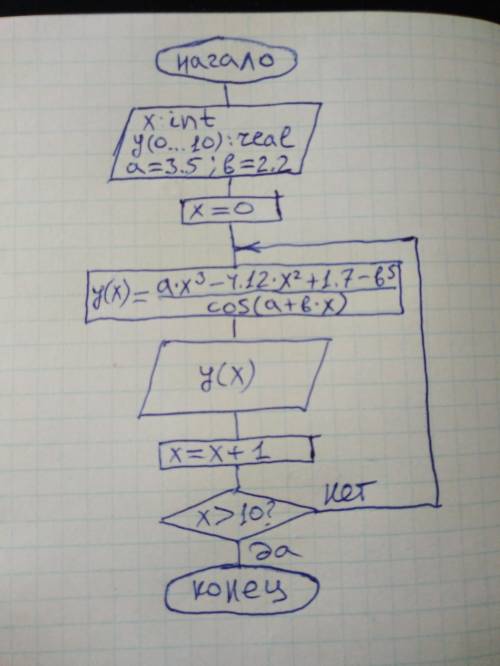 начало
x:int
y(0...10):real
a=3.5; b=2.2
x=0
y(x)= a·x³-4.12·x²+1.7-b⁵
cos(a+b·x)
y(x)
x=x+1
x>10?
нет
да
конец